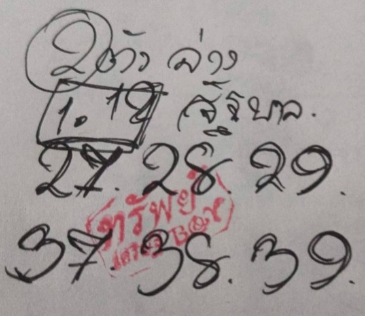 2 ตัว ล่าง
1. 12 รัฐบาล.
27. 28. 29.
ทรัพย์
37. 38. 39.